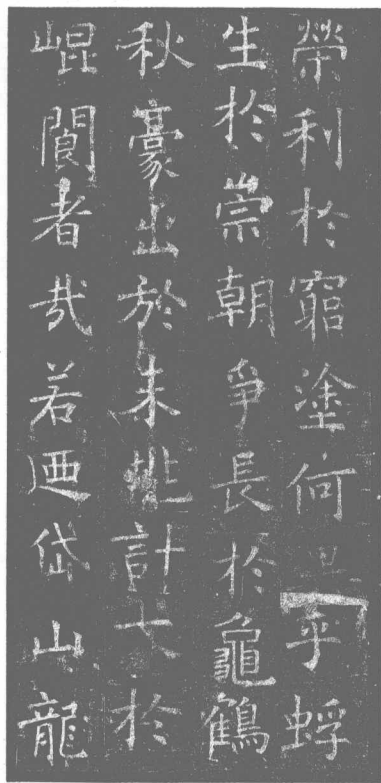 榮利於窮塗何乎蜉
生於崇朝爭長於龜鶴
秋豪出於未兆計大於
崐閬者哉若迺岱山龍